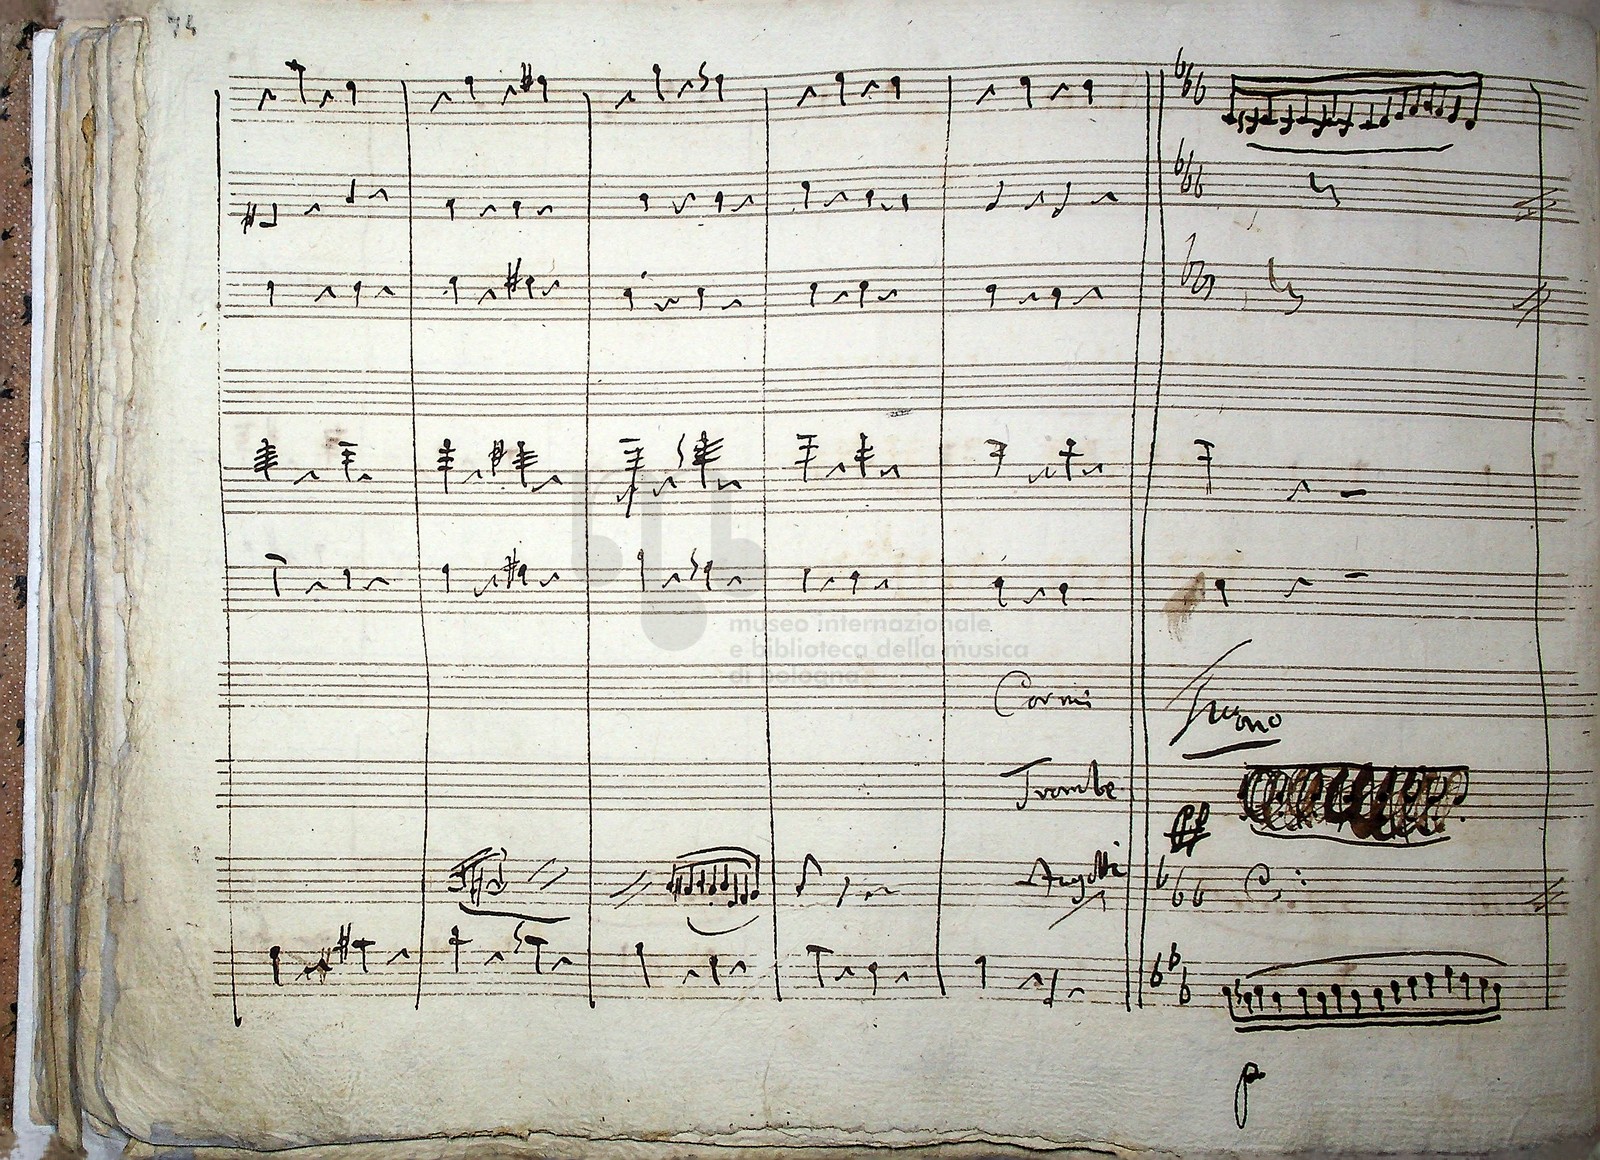 74
museo internazionale
e biblioteca della musica
di bologna
Corni
Tuono
Trombe
ff
Fagotti
p